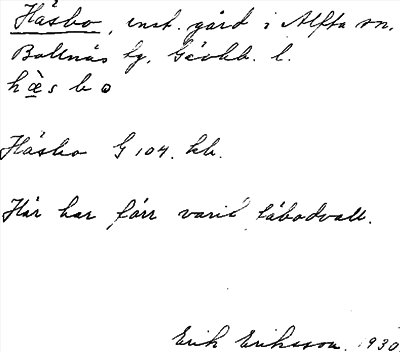 Häsbo, enst. gård i Alfta sn.
Bollnäs tg. Gävlb. l.
hæ̀sbo
Häsbo G 104. kb.
Här har förr varit fäbodvall.
Erik Eriksson. 1930